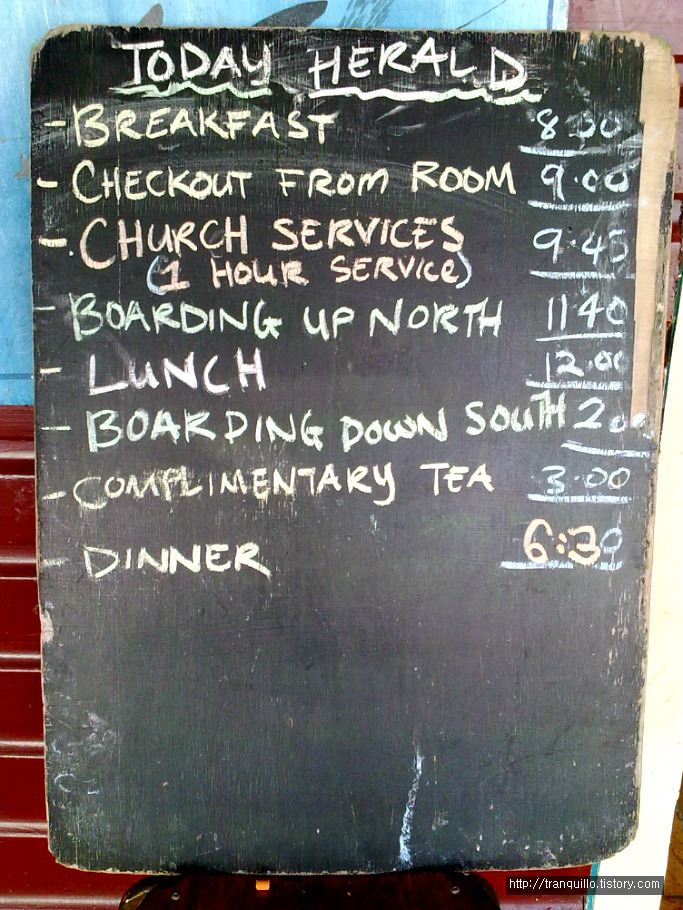 TODAY HERALD
- BREAKFAST 8.00
- CHECKOUT FROM ROOM 9.00
- CHURCH SERVICES 9.45
(1 HOUR SERVICE)
- BOARDING UP NORTH 11.40
- LUNCH 12.00
- BOARDING DOWN SOUTH
- COMPLIMENTARY TEA 3.00
- DINNER 6:30
http://tranquillo.tistory.com